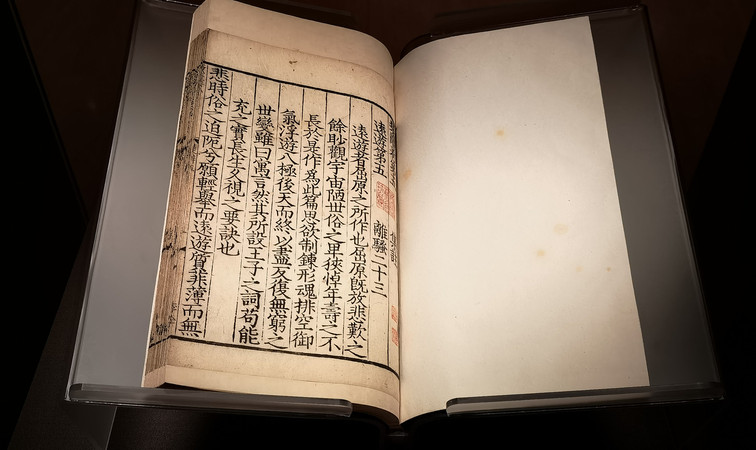 遠遊第五 離騷二十三
遠遊者屈原之所作也屈原既放悲歎之
餘眇觀宇宙陋世俗之卑狹悼年壽之不
長於是作爲此篇思欲制鍊形魂排空御
氣浮遊八極後天而終以盡反復無窮之
世變雖曰寓言然其所設王子之詞苟能
充之實長生久視之要訣也
悲時俗之迫阨兮願輕舉而遠遊質菲薄而無